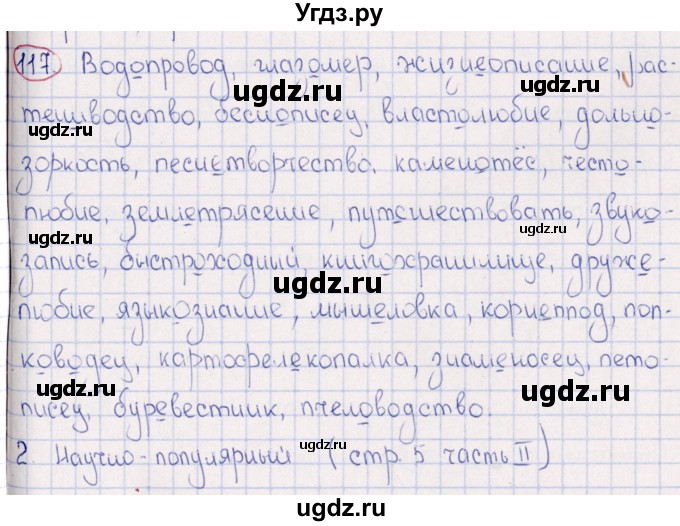 Угдз.ру
117. Водопровод, глагомер, жизнеописание, рас-
тениводство, беснописец, властолюбие, дольно-
зоркость, песнетворчество, каменотёс, често-
любие, землетрясение, путешествовать, звуко-
запись, быстроходный, книгохранилище, друже-
любие, языкознание, мышеловка, корнеплод, пол-
ководец, картофелекопалка, знаменосец, лето-
писец, буревестник, пчеловодство.
2. Научно-популярный (стр. 5 часть II)
ugdz.ru
ugdz.ru
ugdz.ru
ugdz.ru
ugdz.ru
ugdz.ru
ugdz.ru
ugdz.ru
ugdz.ru
ugdz.ru
ugdz.ru
ugdz.ru
ugdz.ru
ugdz.ru
Угдз.ру